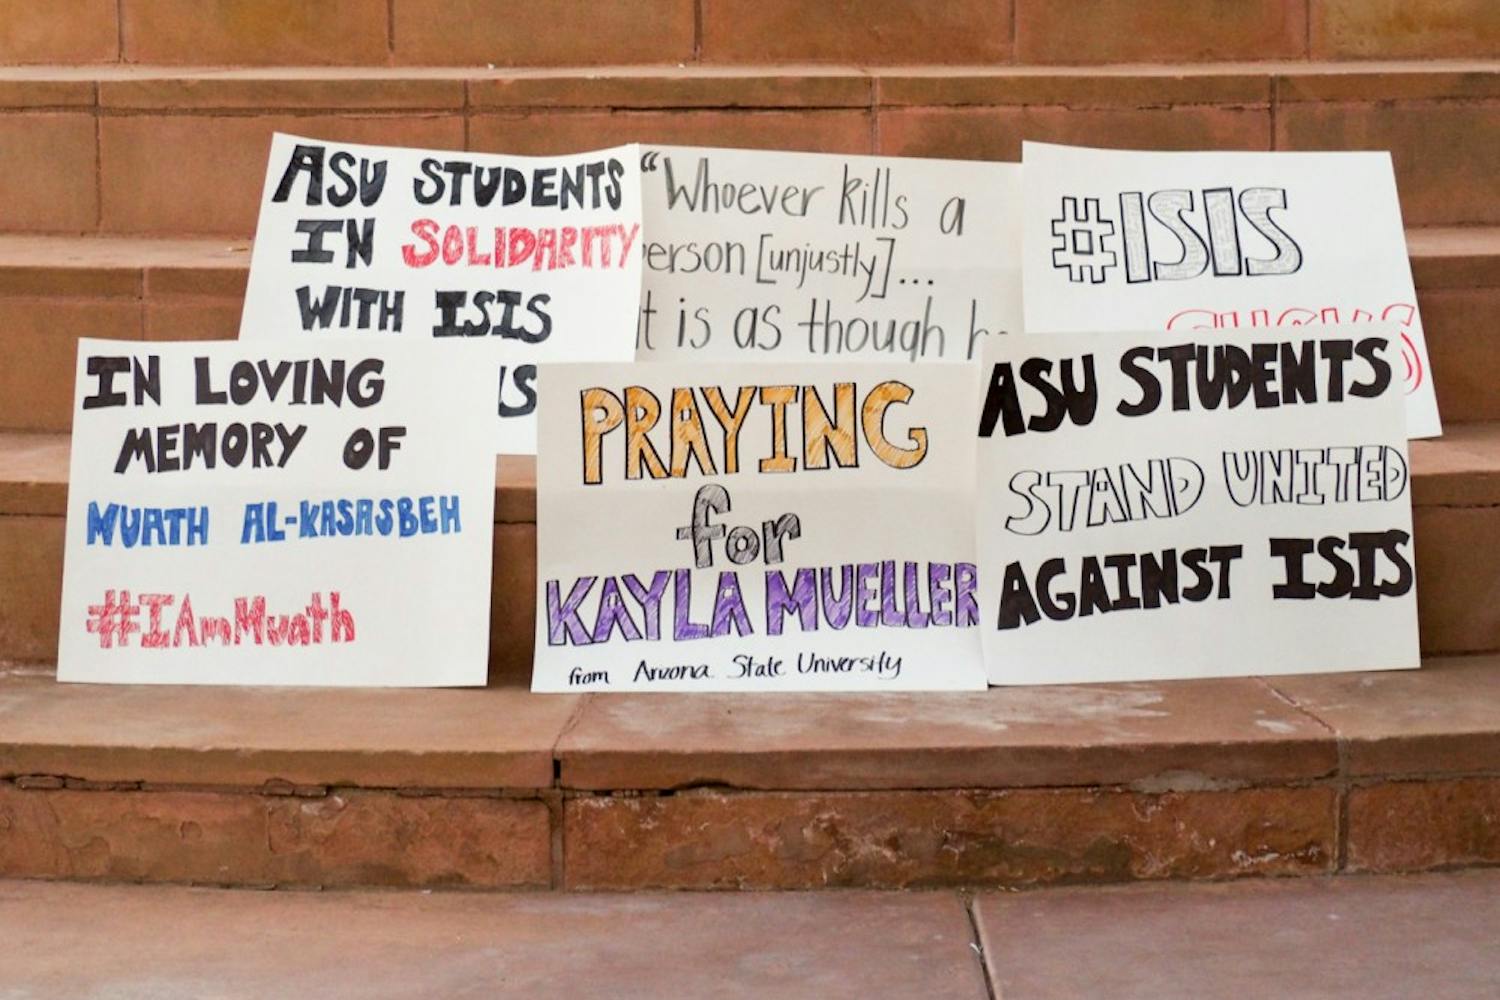 ASU STUDENTS
IN SOLIDARITY
WITH ISIS
"Whoever kills a
[unjustly]...
is as though
#ISIS
IN LOVING
MEMORY OF
MUATH AL-KASASBEH
#IAmMuath
PRAYING
for
KAYLA MUELLER
from Arizona State University
ASU STUDENTS
STAND UNITED
AGAINST ISIS